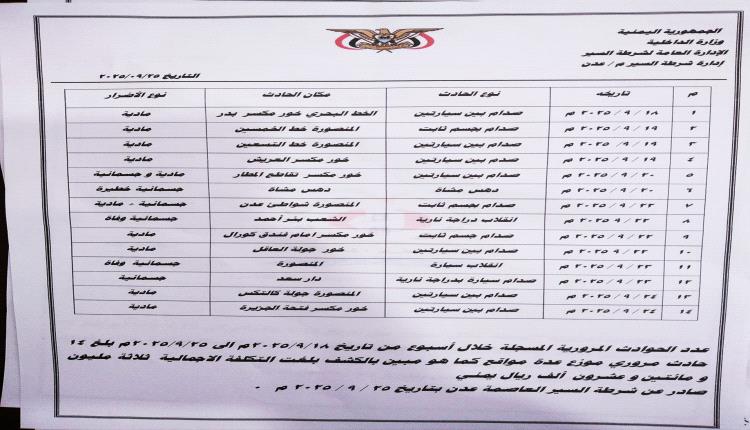 الجمهورية اليمنية
وزارة الداخلية
الإدارة العامة لشرطة السير
إدارة شرطة السير م/ عدن
التاريخ ٢٠٢٥/٠٩/٢٥
م تاريخه نوع الحادث مكان الحادث نوع الأضرار
١ ١٨ / ٩ / ٢٠٢٥ م صدام بين سيارتين الخط البحري خور مكسر بدر مادية
٢ ١٩ / ٩ / ٢٠٢٥ م صدام بجسم ثابت المنصورة خط الخمسين مادية
٣ ١٩ / ٩ / ٢٠٢٥ م صدام بين سيارتين المنصورة خط التسعين مادية
٤ ١٩ / ٩ / ٢٠٢٥ م صدام بين سيارتين خور مكسر العريش مادية
٥ ٢٠ / ٩ / ٢٠٢٥ م صدام بين سيارتين خور مكسر تقاطع المطار مادية و جسمانية
٦ ٢٠ / ٩ / ٢٠٢٥ م دهس مشاة دهس مشاة جسمانية خطيرة
٧ ٢٣ / ٩ / ٢٠٢٥ م صدام بجسم ثابت المنصورة شواطئ عدن جسمانية - مادية
٨ ٢٣ / ٩ / ٢٠٢٥ م انقلاب دراجة نارية الشعب بئر أحمد جسمانية وفاة
٩ ٢٣ / ٩ / ٢٠٢٥ م صدام جسم ثابت خور مكسر امام فندق كورال مادية
١٠ ٢٣ / ٩ ٢٠٢٥ م صدام بين سيارتين خور جولة العاقل مادية
١١ ٢٣ / ٩ / ٢٠٢٥ م انقلاب سيارة المنصورة جسمانية وفاة
١٢ ٢٣ / ٩ / ٢٠٢٥ م صدام سيارة بدراجة نارية دار سعد جسمانية
١٣ ٢٤ / ٩ / ٢٠٢٥ م صدام بين سيارتين المنصورة جولة كالتكس مادية
١٤ ٢٤ / ٩ / ٢٠٢٥ م صدام بين سيارتين خور مكسر فتحة الجزيرة مادية
عدد الحوادث المرورية المسجلة خلال أسبوع من تاريخ ٢٠٢٥/٩/١٨م الى ٢٠٢٥/٩/٢٥م بلغ ١٤
حادث مروري موزع عدة مواقع كما هو مبين بالكشف بلغت التكلفة الاجمالية ثلاثة مليون
و مائتين و عشرون ألف ريال يمني
صادر من شرطة السير العاصمة عدن بتاريخ ٢٥ / ٩ / ٢٠٢٥ م .